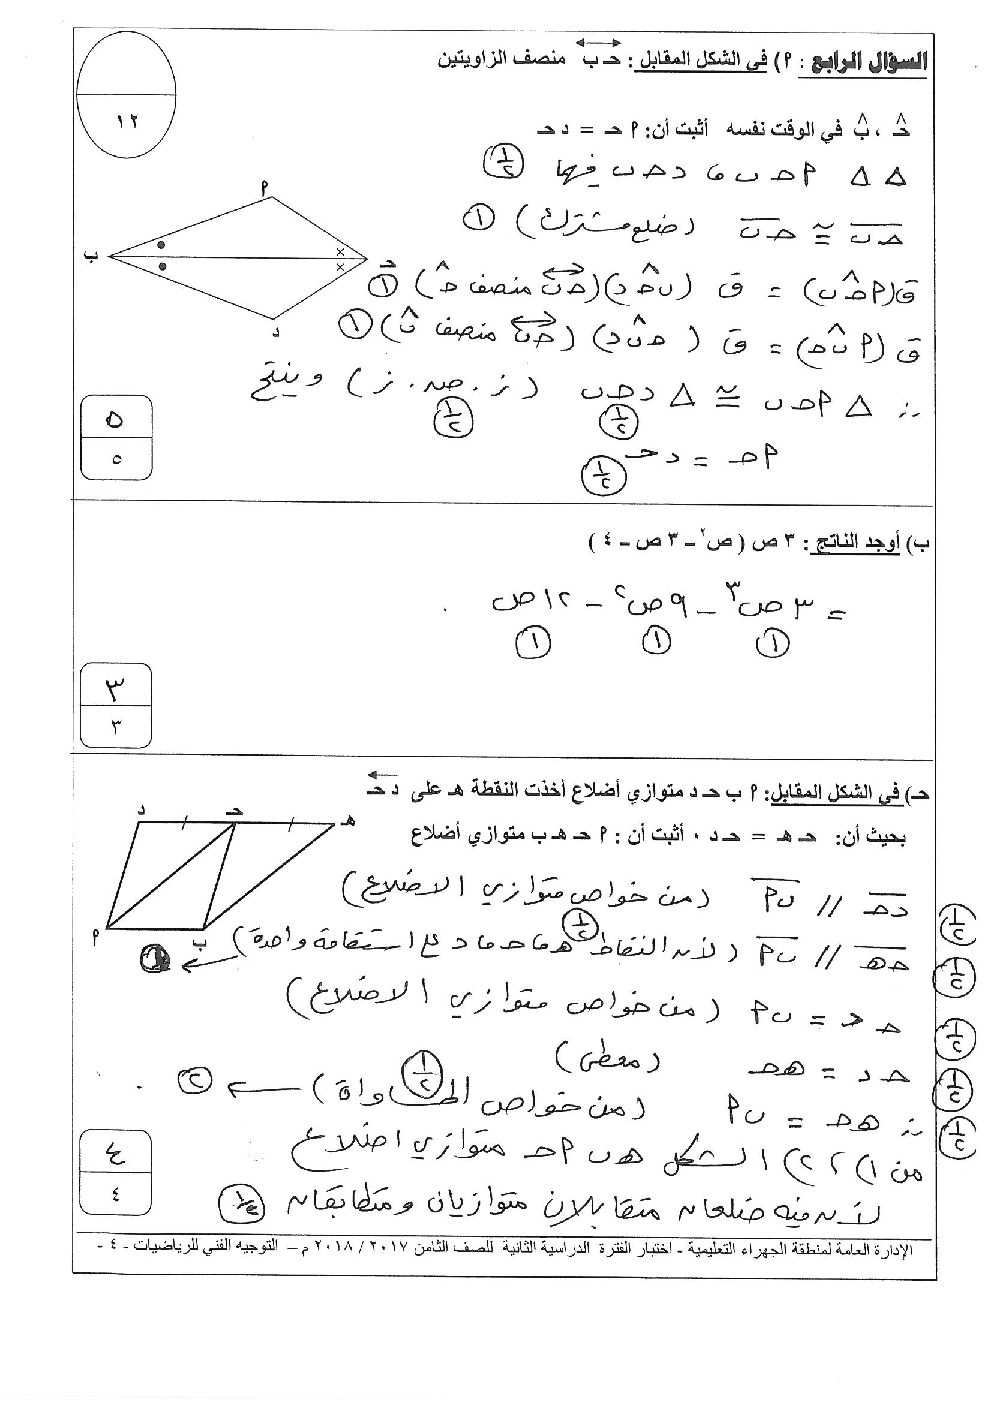 السؤال الرابع : م) في الشكل المقابل : حـ ب منصف الزاويتين
حـ ، ب في الوقت نفسه أثبت أن: م حـ = د حـ
١٢
△ △ م حـ ب ، د حـ ب فيها ١/٢
حـ ب ≅ حـ ب (ضلع مشترك) ١
ق (م حـ ب) = ق (ب حـ د) (حـ ب منصف حـ) ١
ق (م ب حـ) = ق (حـ ب د) (حـ ب منصف ب) ١
∴ △ م حـ ب ≅ △ د حـ ب (ز . ض . ز) وينتج
١/٢ ١/٢
م حـ = د حـ
١/٢
م
ب
حـ
د
٥
٥
ب) أوجد الناتج : ٣ ص ( ص٢ – ٣ ص – ٤ )
= ٣ ص٣ – ٩ ص٢ – ١٢ ص
١ ١ ١
٣
٣
حـ) في الشكل المقابل: م ب حـ د متوازي أضلاع أخذت النقطة هـ على د حـ
بحيث أن: حـ هـ = حـ د ، أثبت أن : م حـ هـ ب متوازي أضلاع
د حـ هـ
م ب
د حـ // ب م (من خواص متوازي الاضلاع) ١/٢
حـ هـ // ب م (لأن النقاط هـ ، حـ ، د على استقامة واحدة) ← ١ ١/٢
حـ د = ب م (من خواص متوازي الاضلاع) ١/٢
حـ د = هـ حـ (معطى) ١/٢
∴ هـ حـ = ب م (من خواص المساواة) ← ٢ ١/٢
من ١) ، ٢) الشكل هـ ب م حـ متوازي اضلاع
لأن فيه ضلعان متقابلان متوازيان ومتطابقان ١/٢
٤
٤
الإدارة العامة لمنطقة الجهراء التعليمية - اختبار الفترة الدراسية الثانية للصف الثامن ٢٠١٧ / ٢٠١٨ م – التوجيه الفني للرياضيات - ٤ -